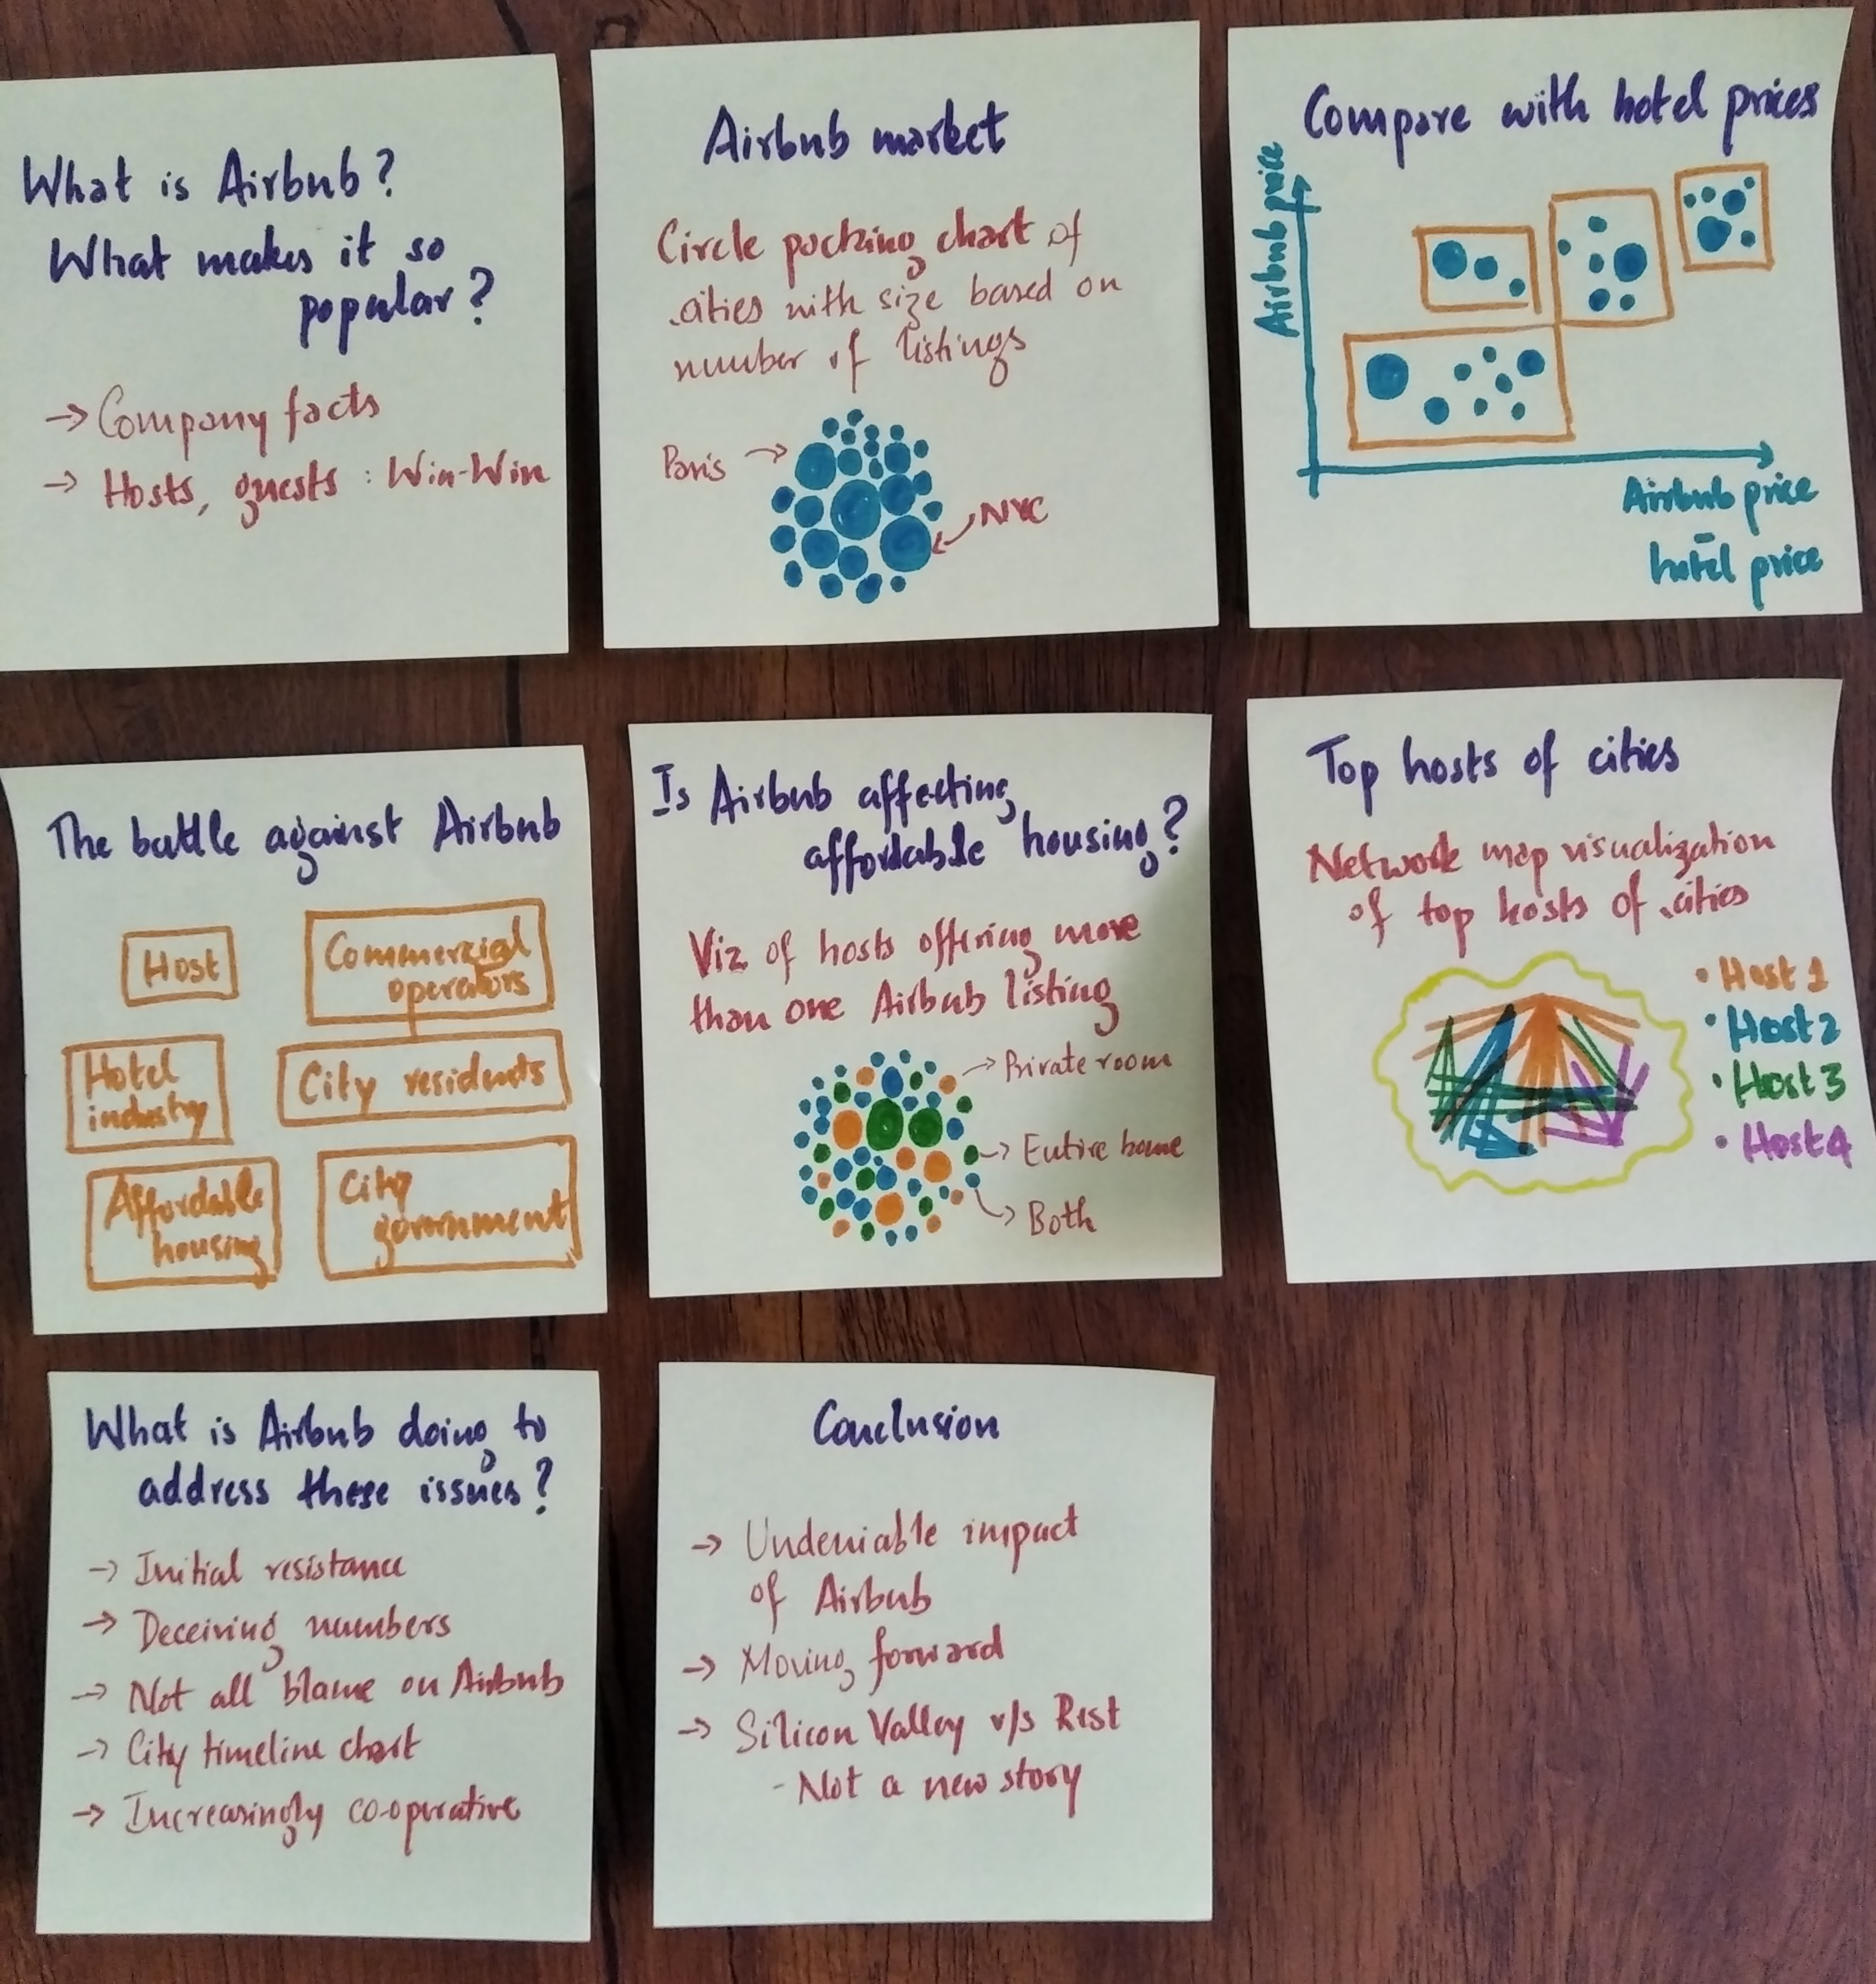 What is Airbnb?
What makes it so
popular?
→ Company facts
→ Hosts, guests : Win-Win
Airbnb market
Circle packing chart of
cities with size based on
number of listings
Paris →
NYC
Compare with hotel prices
Airbnb price
Airbnb price
-
hotel price
The battle against Airbnb
Host
Commercial
operators
Hotel
industry
City residents
Affordable
housing
City
government
Is Airbnb affecting
affordable housing?
Viz of hosts offering more
than one Airbnb listing
→ Private room
→ Entire home
→ Both
Top hosts of cities
Network map visualization
of top hosts of cities
• Host 1
• Host 2
• Host 3
• Host 4
What is Airbnb doing to
address these issues?
→ Initial resistance
→ Deceiving numbers
→ Not all blame on Airbnb
→ City timeline chart
→ Increasingly co-operative
Conclusion
→ Undeniable impact
of Airbnb
→ Moving forward
→ Silicon Valley v/s Rest
- Not a new story